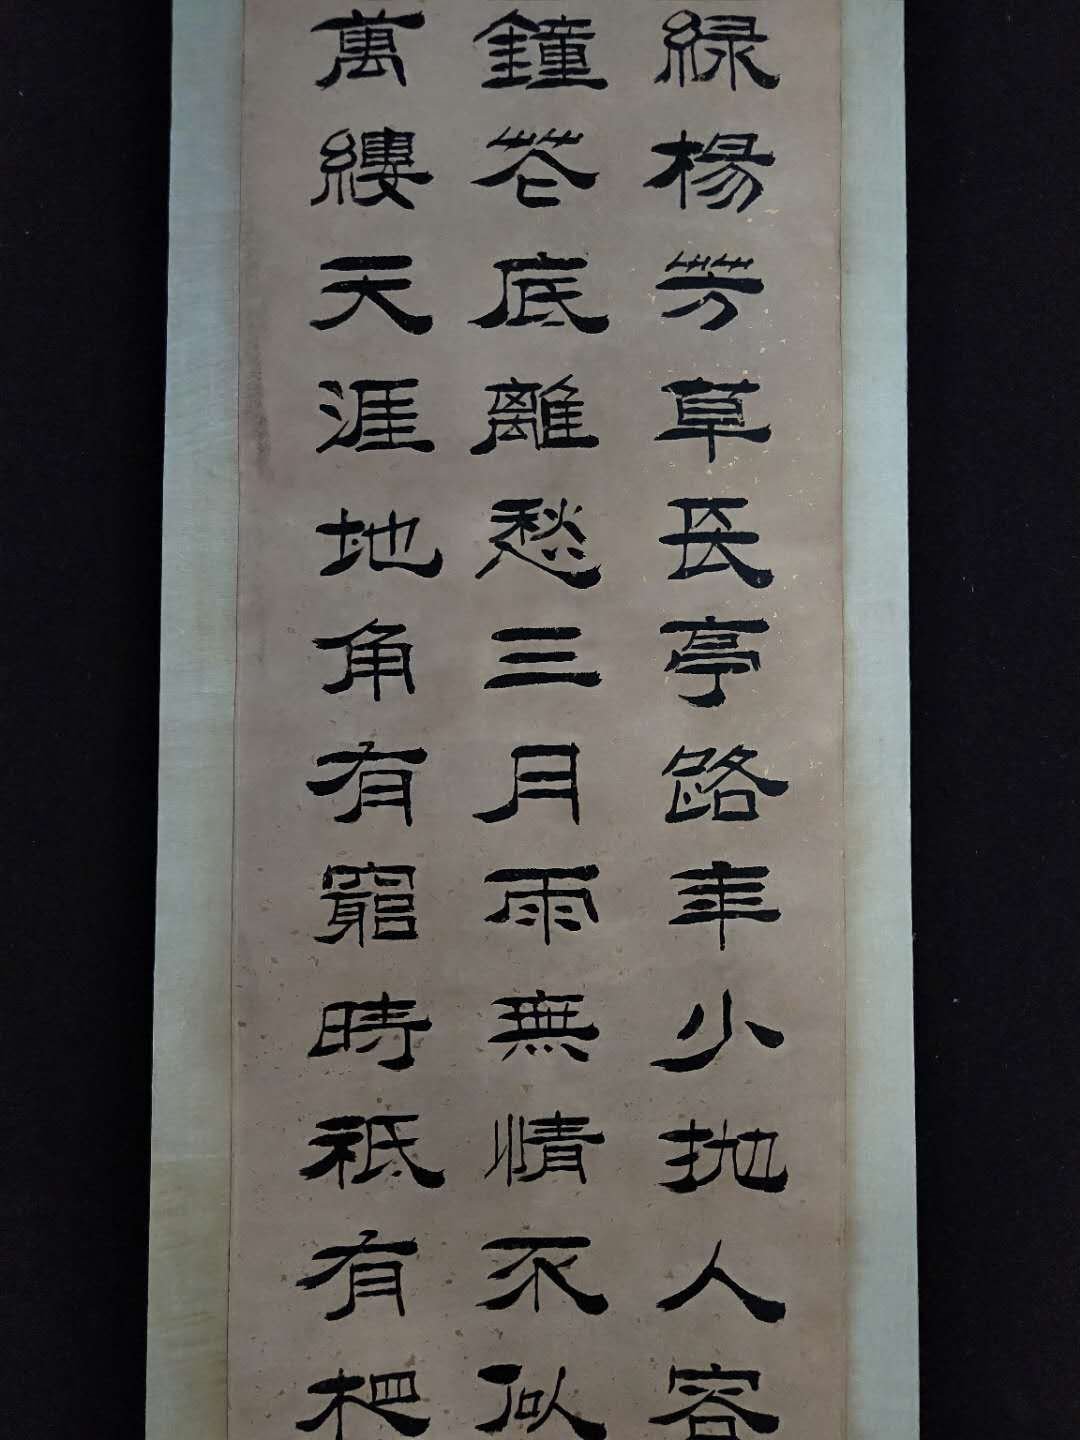 緑楊芳草長亭路年少抛人容
鐘花底離愁三月雨無情不似
萬縷天涯地角有窮時祇有相